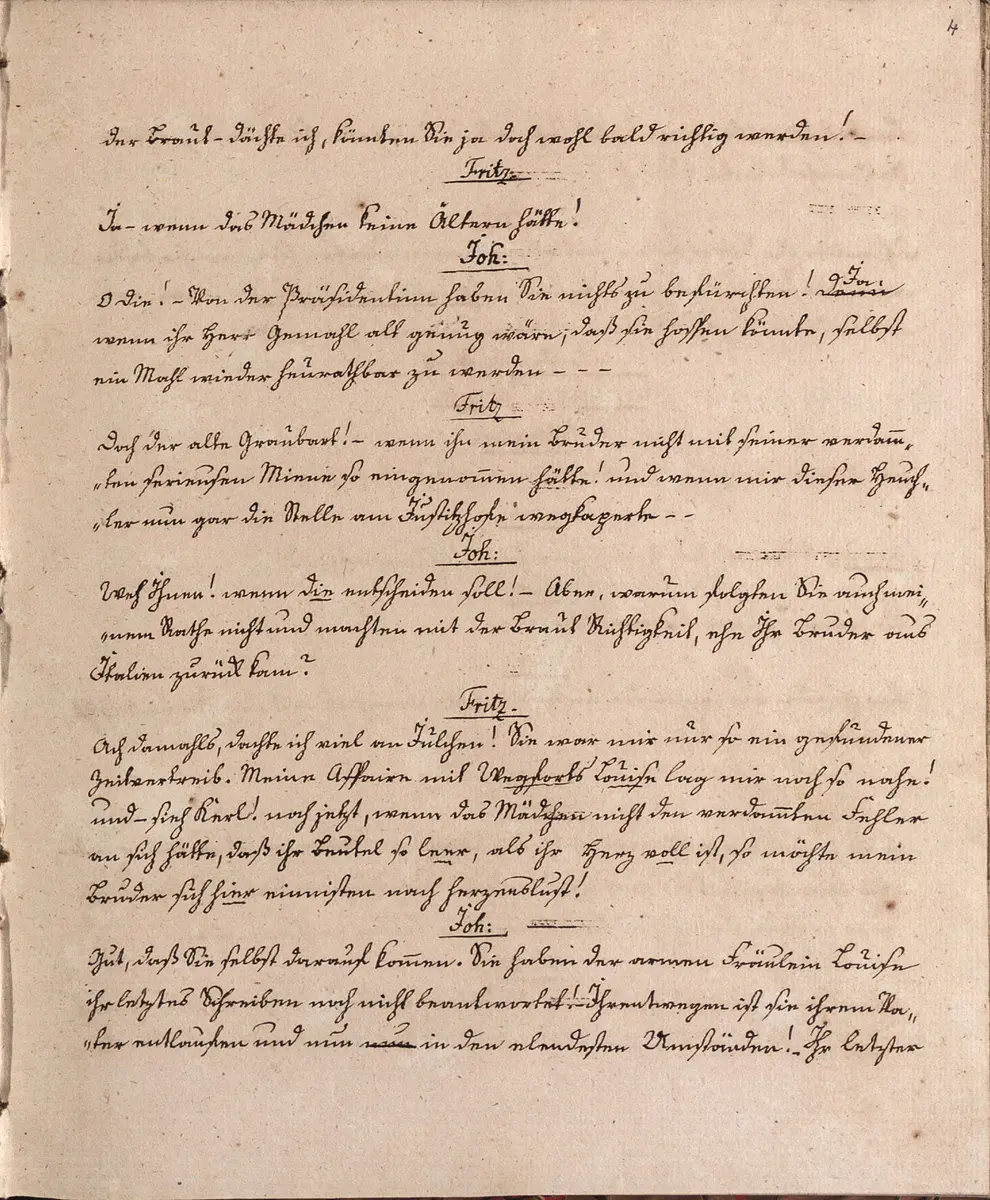 4
der Braut – dächte ich, könnten Sie ja doch wohl bald richtig werden! –
Fritz.
Ja – wenn das Mädchen keine Ältern hätte!
Joh:
O die! – Von der Präsidentinn haben Sie nichts zu befürchten! Ja:
wenn ihr Herr Gemahl alt genug wäre, daß sie hoffen könnte, selbst
ein Mahl wieder heurathbar zu werden – – –
Fritz
Doch der alte Graubart! – wenn ihn mein Bruder nicht mit seiner verdamm„
„ten serieusen Miene so eingenommen hätte! und wenn mir dieser Heuch„
„ler nun gar die Stelle am Justitzhofe wegkaperte – –
Joh:
Weh Ihnen! wenn die entscheiden soll! – Aber, warum folgten Sie auch mei„
„nem Rathe nicht und machten mit der Braut Richtigkeit, ehe Ihr Bruder aus
Italien zurück kam?
Fritz.
Ach damahls, dachte ich viel an Julchen! Sie war mir nur so ein gefundener
Zeitvertreib. Meine Affaire mit Wegforts Louise lag mir noch so nahe!
und – sieh Kerl! noch jetzt, wenn das Mädchen nicht den verdammten Fehler
an sich hätte, daß ihr Beutel so leer, als ihr Herz voll ist, so möchte mein
Bruder sich hier einnisten nach Herzenslust!
Joh:
Gut, daß Sie selbst darauf kommen. Sie haben der armen Fräulein Louise
ihr letztes Schreiben noch nicht beantwortet! – Ihrentwegen ist sie ihrem Va„
„ter entlaufen und nun nun in den elendesten Umständen! – Ihr letzter